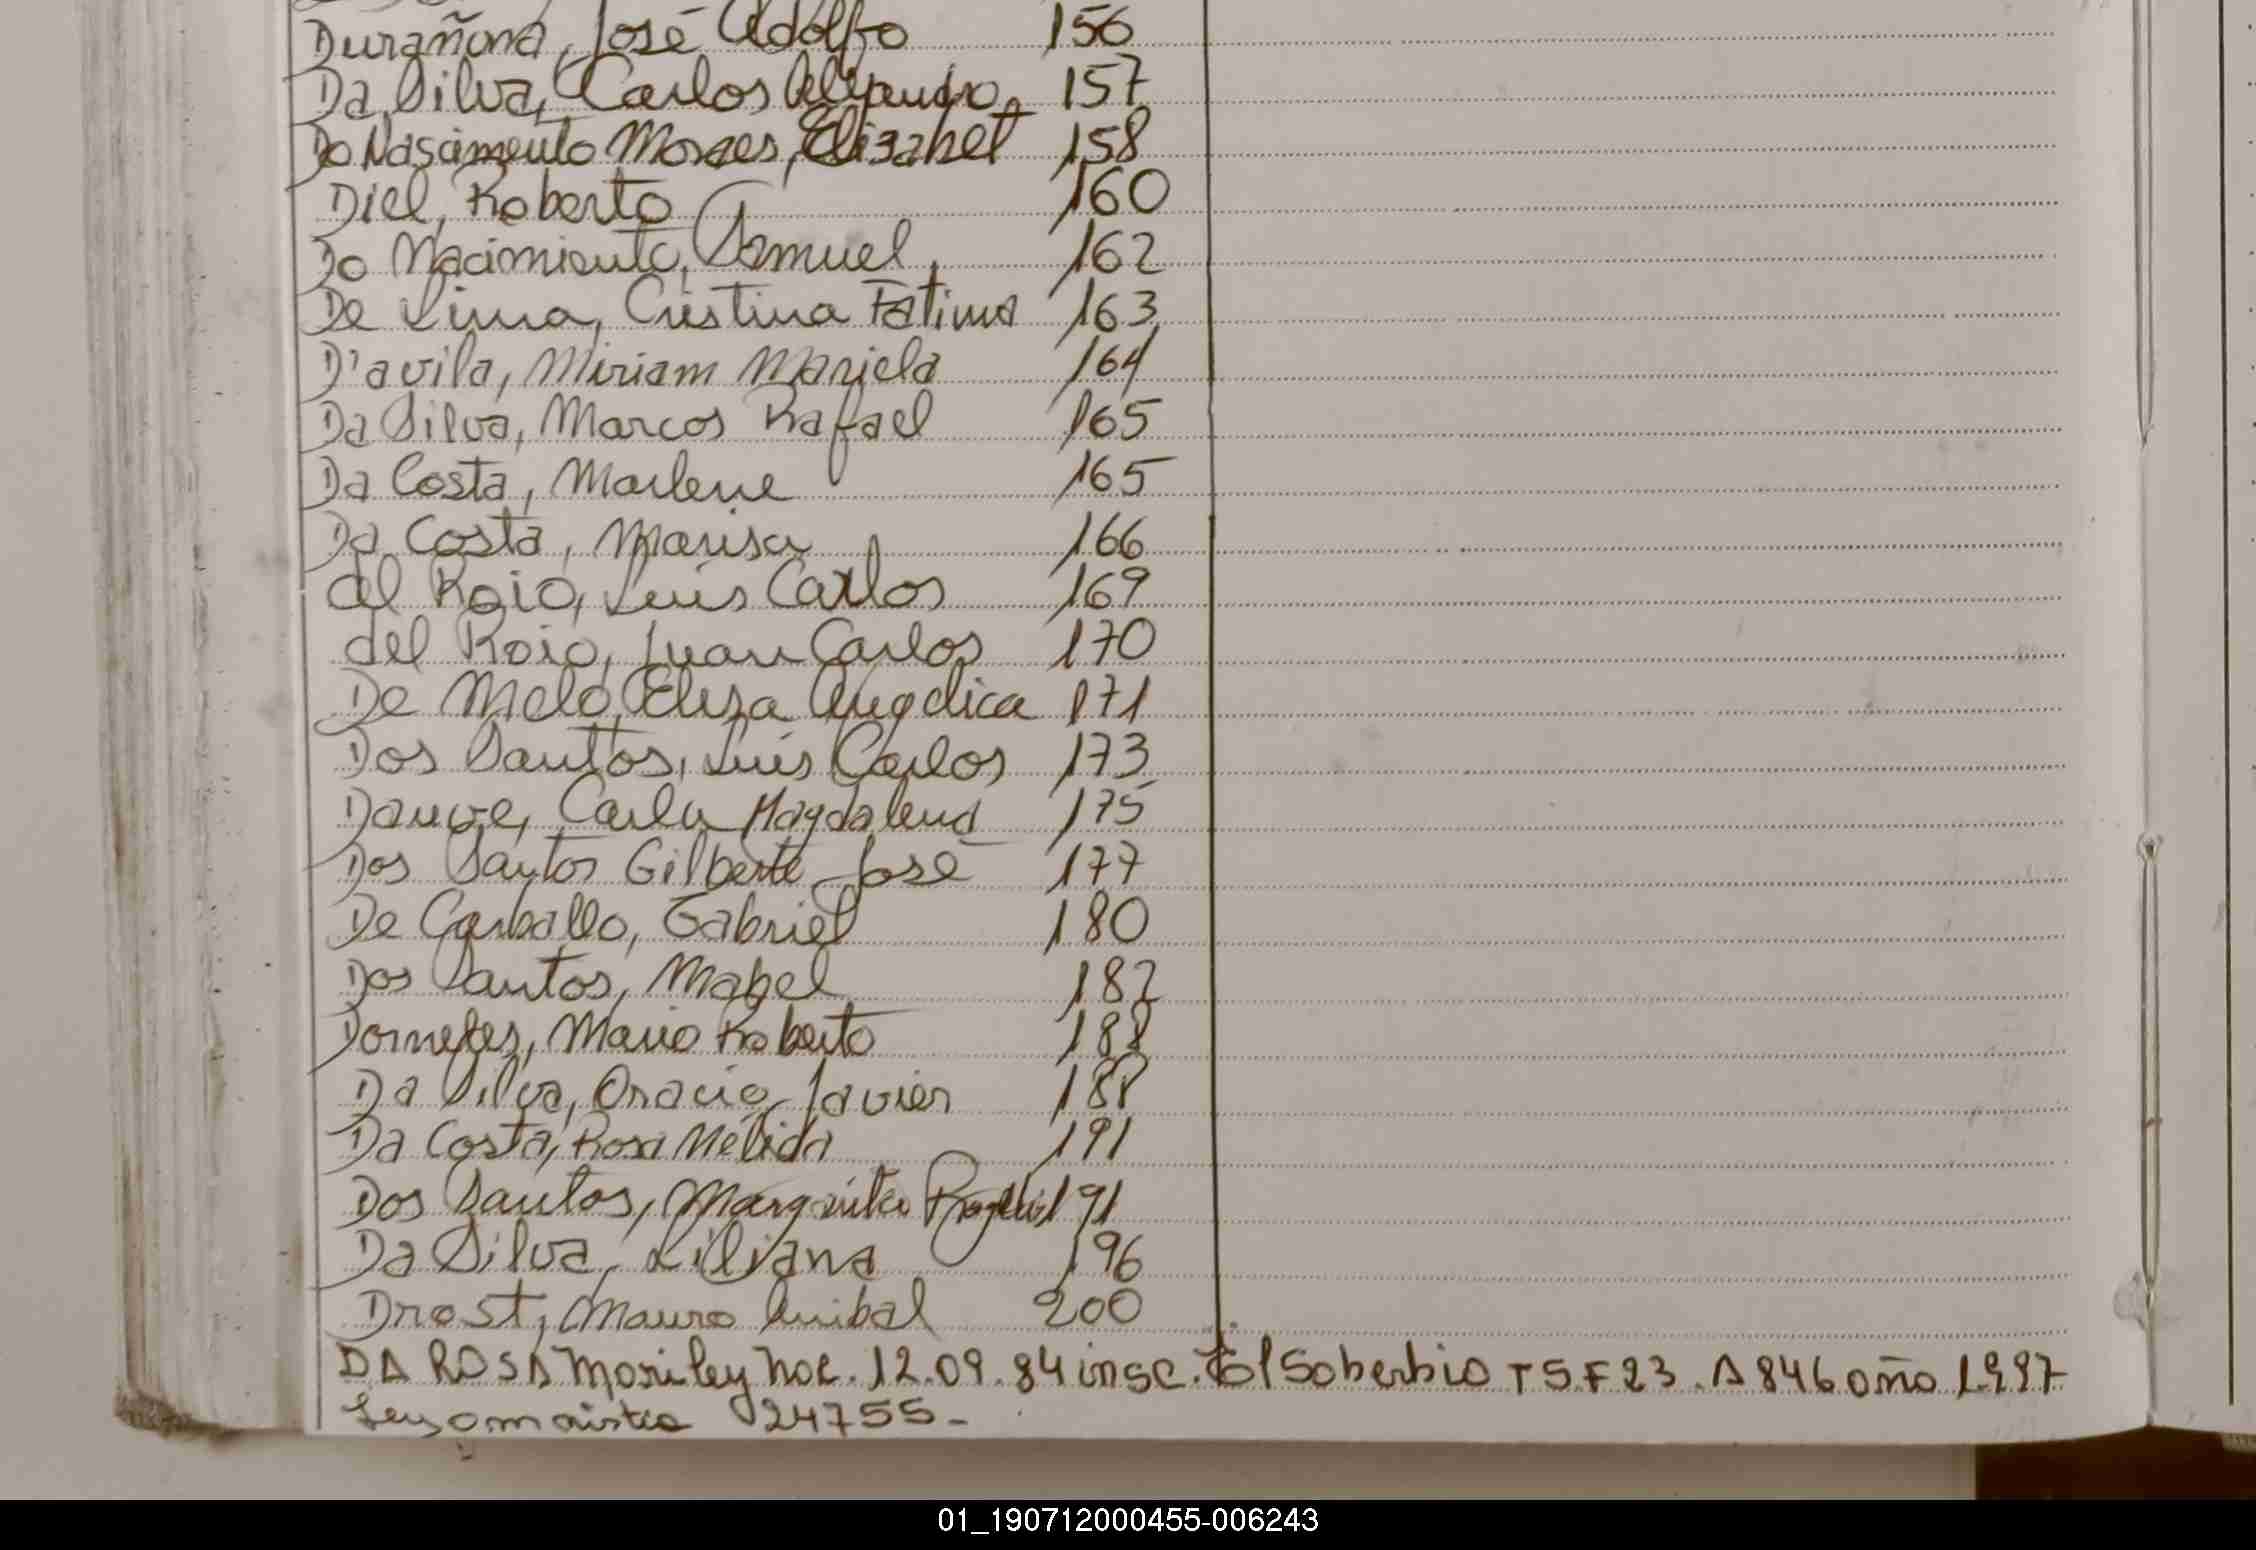 Durañona, José Adolfo 156
Da Silva, Carlos Alejandro 157
Do Nascimento Moraes, Elizabet 158
Diel, Roberto 160
Do Nacimiento, Samuel 162
De Lima, Cristina Fatima 163
D'avila, Miriam Mariela 164
Da Silva, Marcos Rafael 165
Da Costa, Marlene 165
Da Costa, Marisa 166
del Roio, Luis Carlos 169
del Roio, Juan Carlos 170
De Melo, Elisa Angelica 171
Dos Santos, Luis Carlos 173
Dauve, Carla Magdalena 175
Dos Santos Gilberto José 177
De Carballo, Gabriel 180
Dos Santos, Mabel 182
Dorneles, Mario Roberto 188
Da Silva, Oracio Javier 188
Da Costa, Rosa Nélida 191
Dos Santos, Margarita 191
Da Silva, Liliana 196
Drost, Mauro Anibal 200
DA ROSA Mariley nac. 12.09.84 insc. El Soberbio T 5 F 23. A 846 año 1997
Ley amnistia 24755-
01_190712000455-006243